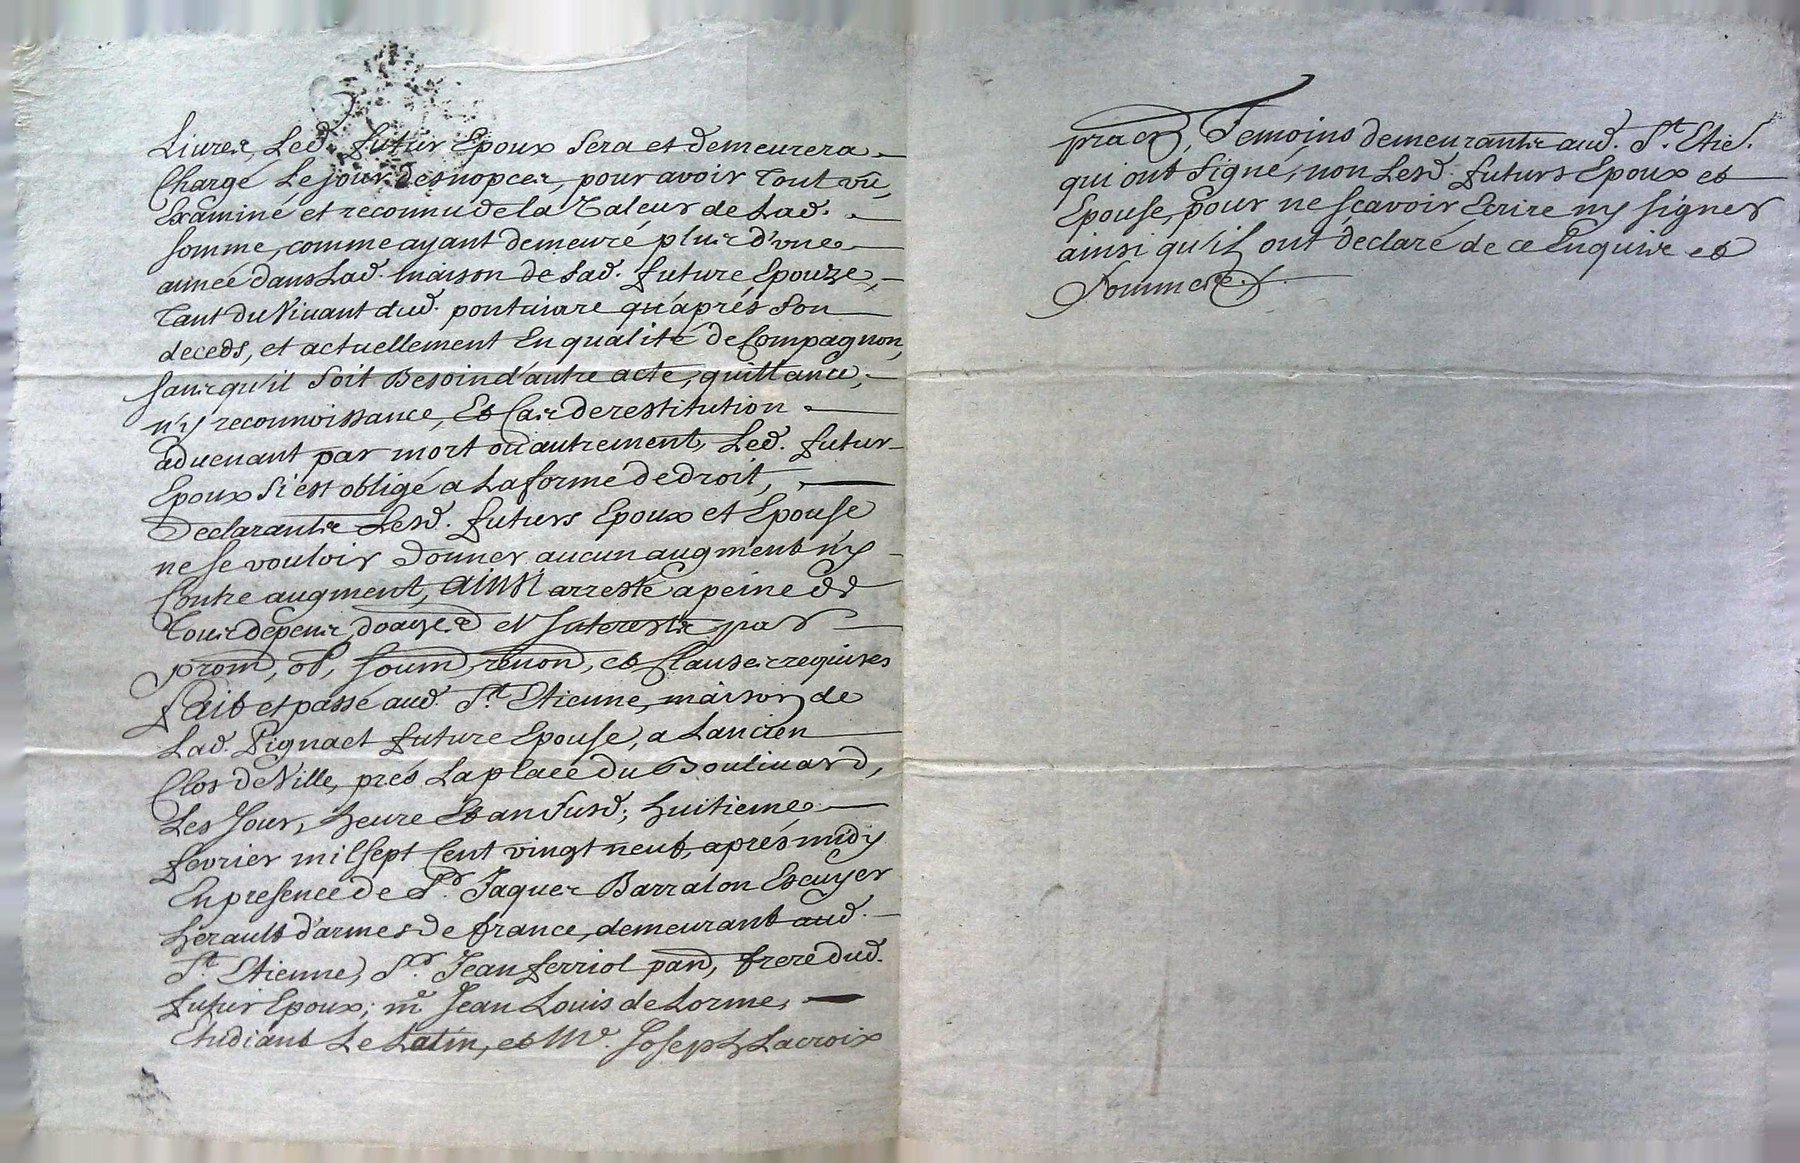 Livres, Led. futur Epoux sera et demeurera
Chargé Le jour des nopces, pour avoir Tout vû,
Examiné et reconnu de la Valeur de Lad.
somme, comme ayant demeuré plus d'une
année dans Lad. maison de Lad. future Epouze,
Tant du Vivant dud. pontuiare qu'aprés son
deceds, et actuellement En qualité de Compagnon,
sans qu'il soit Besoin d'autre acte, quittance,
n'y reconnoissance, Et Cas de restitution
aduenant par mort ou autrement, Led. futur
Epoux s'est obligé a La forme de droit,
Declarants Lesd. futurs Epoux et Epouse
ne se vouloir donner aucun augment n'y
Contre augment, ainsi arresté a peine de
Tous depens, et Interests par
prom, ob, soum, renon, et Clauses requises
fait et passé aud. St. Etienne, maison de
Lad. future Epouse, a Lancien
Clos de Ville, prés La place du Boulivard,
Les Jour, heure Et an susd; huitieme
fevrier mil sept Cent vingt neuf, aprés midy
En presence de Sr. Jaques Barralon Escuyer
herault d'armes de france, demeurant aud.
St. Etienne, Sr. Jean ferriol pan, frere dud.
futur Epoux; me Jean Louis de Lorme,
Etudiant Le Latin, et Me. Joseph Lacroix
pracn, Temoins demeurants aud. St. Etie.
qui ont signé, non Lesd. futurs Epoux et
Epouse, pour ne scavoir Ecrire ny signer
ainsi qu'ils ont declaré de ce Enquis et
sommés